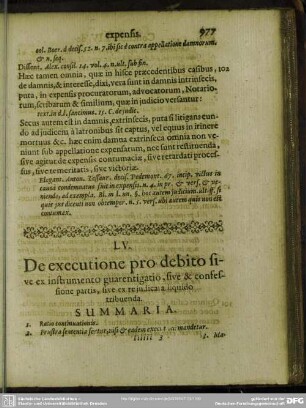 expensis. 977
vel. Boer. d. decis. 52. n. 7. ibi sic è contra appellatione damnorum,
& n. seq.
Dissent. Alex. consil. 14. vol. 4. n. ult. sub fin.
Hæc tamen omnia, quæ in hisce præcedentibus casibus, 102
de damnis, & interesse, dixi, vera sunt in damnis intrinsecis,
puta, in expensis procuratorum, advocatorum, Notario-
rum, scribarum & similium, quæ in judicio versantur:
text. in d. l. sancimus. 15. C. de judic.
Secus autem est in damnis, extrinsecis, puta si litigans eun-
do ad judicem à latronibus sit captus, vel equus in itinere
mortuus &c. hæc enim damna extrinseca omnia non ve-
niunt sub appellatione expensarum, nec sunt restituenda,
sive agitur de expensis contumaciæ, sive retardati proces-
sus, sive temeritatis, sive victoriæ.
Eleganz. Anton. Tessaur. decis. Pedemont. 27. incip. victus in
causa condemnatus suit in expensis. n. 4. in pr. & vers. & po-
niendo, ad exempla.
contumax.
LV.
De executione pro debito si-
ve ex instrumento guarentigatio, sive & confes-
sione partis, sive ex re judicata liquido
tribuenda.
SUMMARIA.
1. Ratio continuationis.
2. Prostra sententia sertur, nisi & eadem executioni mandetur.
Iiiiii 5 3. Ma-